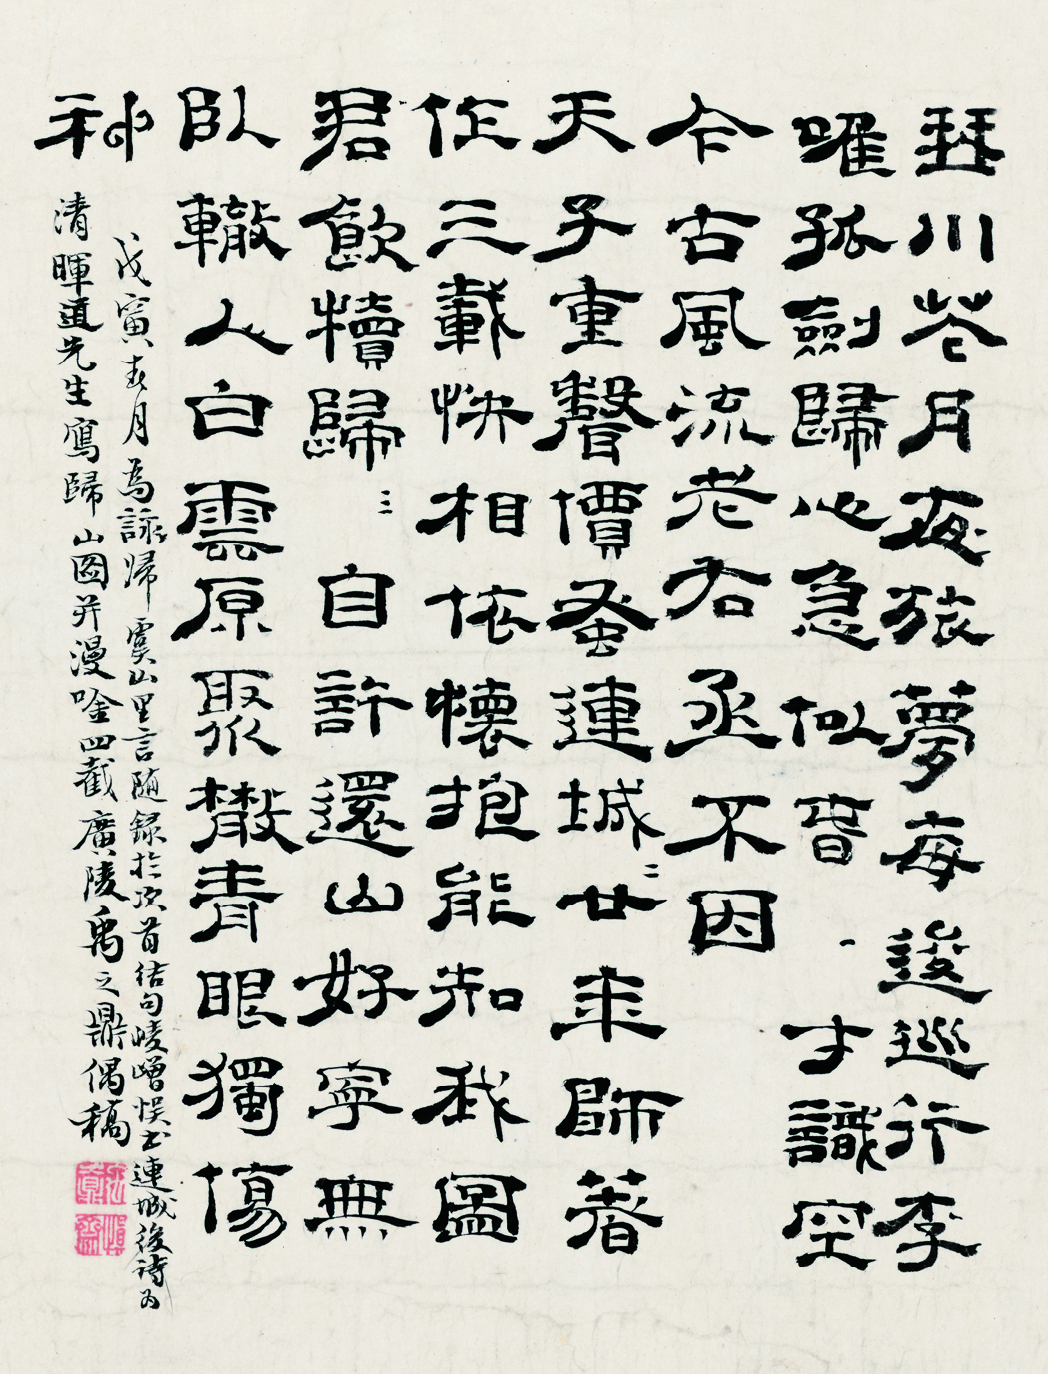 琴川花月夜旅夢每逡巡行李
唯孤劍歸心急似旾 一 才識空
今古風流老右丞不因
天子重聲價蚤連城 二 廿年師著
作三載快相依懷抱能知我圖
君飲犢歸 三 自許還山好寧無
臥轍人白雲原聚散青眼獨傷
神
戊寅春月為詠歸虞山里言随録於次首結句崚嶒悮書連城後詩為
清暉道先生寫歸山圖并漫唫四截廣陵禹之鼎偶稿